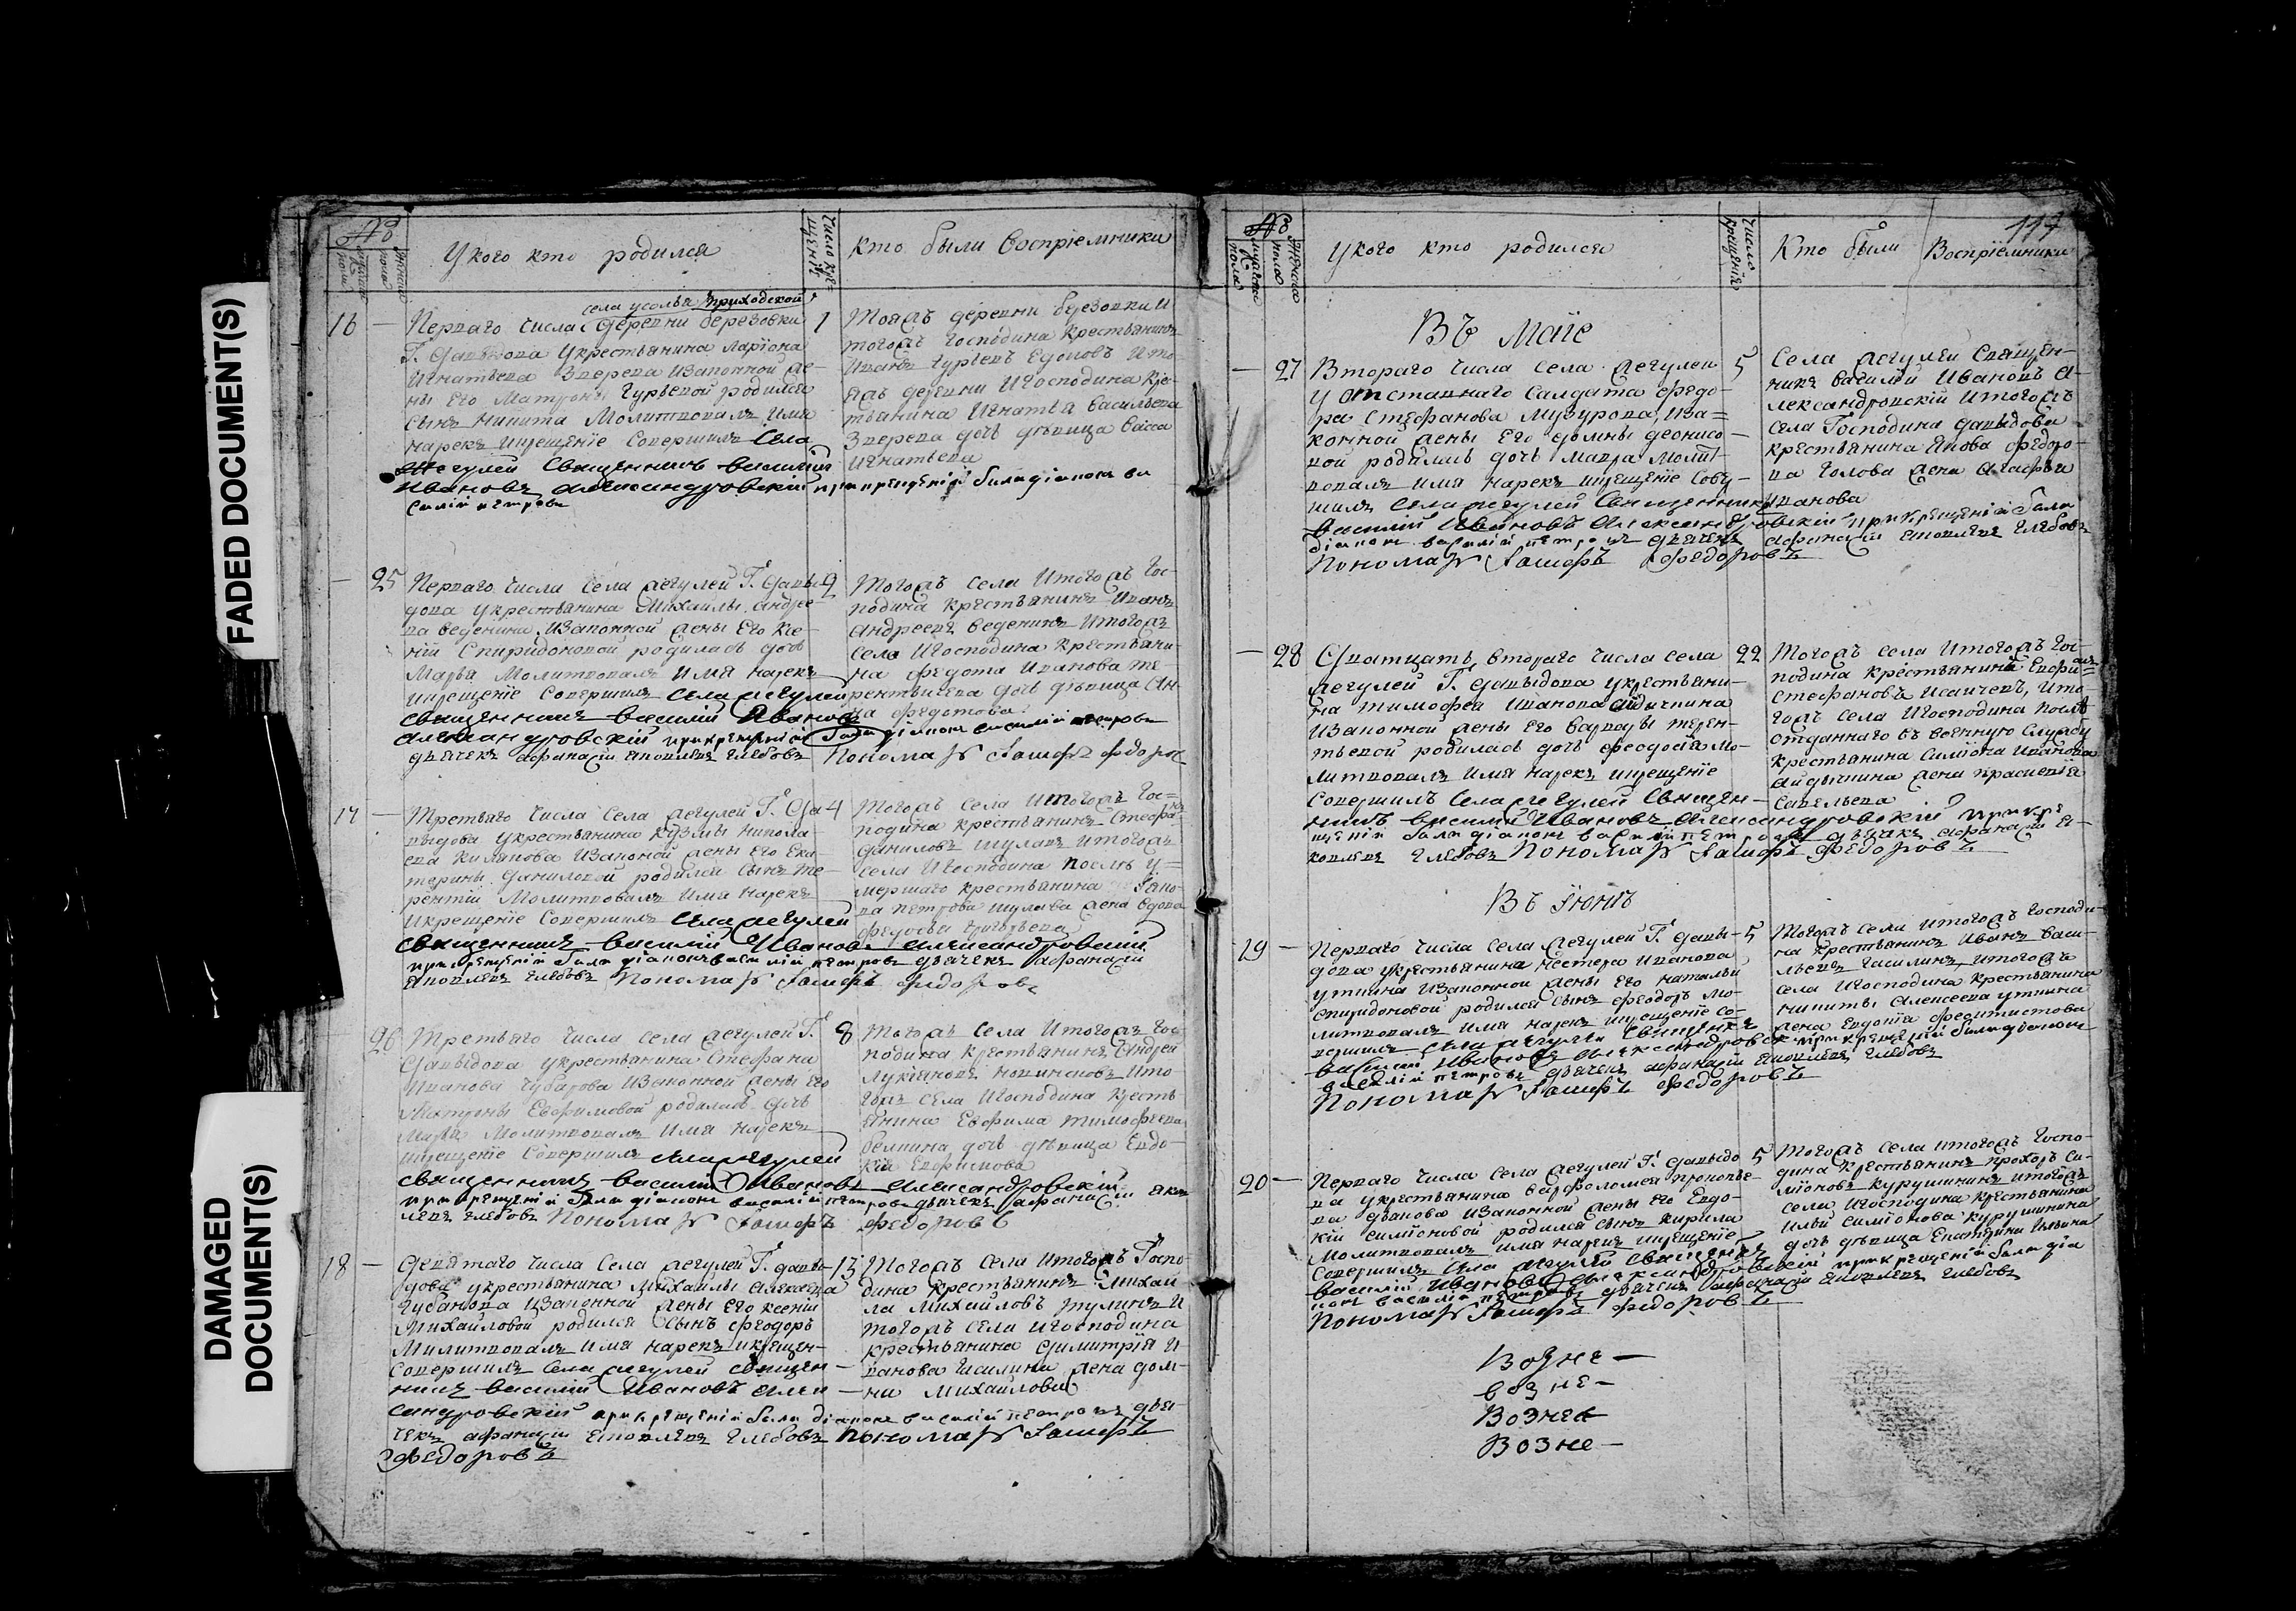 FADED DOCUMENT(S)
DAMAGED
DOCUMENT(S)
№
У кого кто родился
Число кре-
щенія
кто были Воспріемники
села усолья приходской
16 — Перваго числа деревни березовки
Г. Давыдова укрестьянина Ларіона
Игнатьева Зверева Иззаконной же-
ны Его Матроны Гурьевой родился
сынъ Никита Молитвовалъ Имя
нарекъ икрещеніе Совершилъ Села
Жегулей Священникъ Василій
Ивановъ Александровскій при крещеніи были діаконъ ва
силій петровъ
1
Тояжъ деревни березовки И
тогожъ господина Крестьянинъ
Иванъ Гурьевъ Едоковъ Ито-
яжъ деревни Игосподина Кре-
стьянина Игнатья Васильева
Зверева дочь девица Васса
Игнатьева
— 25 Перваго числа Села жегулей Г. Давы-
дова укрестьянина Михаилы Андрее-
ва Веденина Иззаконной жены Его Ксе-
ніи Спиридоновой родилась дочь
Марья Молитвовалъ Имя нарекъ
икрещеніе Совершилъ Села жегулей
священникъ Василій Ивановъ
Александровскій при крещеніи были діаконъ василій петровъ
дьячекъ афанасій яковлевъ Глебовъ Пономарь Іосифъ Федоровъ
2
Тогожъ села Итогожъ Гос-
подина крестьянинъ Иванъ
Андреевъ Веденинъ Итогожъ
Села Игосподина Крестьяни-
на Федота Иванова Те-
рентьичева дочь девица Ан-
на Федотова
17 — Третьяго числа Села жегулей Г. Да-
выдова укрестьянина Кузмы Никола-
ева Килянова Иззаконой жены Его Ека
терины Даниловой родился сынъ Те-
рентій Молитвовалъ Имя нарекъ
Икрещеніе Совершилъ Села жегулей
священникъ Василій Ивановъ Александровскій
при крещеніи были діаконъ василій петровъ дьячекъ афанасій
яковлевъ Глебовъ Пономарь Іосифъ Федоровъ
4
Тогожъ села Итогожъ Гос-
подина крестьянинъ Стефанъ
Даниловъ Шулаевъ Итогожъ
села Игосподина после у-
мершаго крестьянина
ва петрова Шулаева жена вдова
Федосья Григорьева
— 26 Третьяго числа села жегулей Г.
Давыдова укрестьянина Стефана
Иванова Чубарова Иззаконной жены Его
Матроны Евфимовой родилась дочь
Марья Молитвовалъ Имя нарекъ
икрещеніе Совершилъ Села жегулей
священникъ Василій Ивановъ Александровскій
при крещеніи были діаконъ василій петровъ дьячекъ афанасій яков
левъ Глебовъ Пономарь Іосифъ Федоровъ
8
Тогожъ Села Итогожъ Гос-
подина Крестьянинъ Андрей
Лукіановъ Новинсковъ Ито-
гожъ Села Игосподина кресть-
янина Евфима Тимофеева
Белкина дочь девица Евдо-
кія Евфимова
18 — Девятаго числа Села жегулей Г. Давы-
дова укрестьянина Михаилы Алексеева
Губанова Иззаконной жены Его Ксеніи
Михайловой родился Сынъ Феодоръ
Молитвовалъ Имя нарекъ икрещен-
Совершилъ Села жегулей Священ-
никъ Василій Ивановъ Алек-
сандровскій при крещеніи были діаконъ василій петровъ дья-
чекъ афанасій яковлевъ Глебовъ Пономарь Іосифъ
Федоровъ
13
Тогожъ Села Итогожъ Госпо-
дина крестьянинъ Михай
ла Михайловъ Тулинъ И
тогожъ Села Игосподина
крестьянина Димитрія И-
ванова Чисалина жена дом-
на Михайлова
117
№
У кого кто родился
Число
крещенія
Кто были Воспріемники
Въ Маіе
— 27 Втораго числа Села жегулей
у отставнаго Салдата федо-
ра Стефанова Музурова, Изза-
конной жены Его домны деонисо-
вой родилась дочь Мавра Молит-
вовалъ Имя нарекъ икрещеніе Совер-
шилъ Села жегулей Священникъ
Василій Ивановъ Александровскій при крещеніи были
діаконъ василій петровъ дьячекъ афанасій яковлевъ Глебовъ
Пономарь Іосифъ Федоровъ
5
Села жегулей Священ-
никъ Василій Ивановъ А-
лександровскій Итогожъ
села Господина давыдова
крестьянина Якова Федоро-
ва Голова жена Агафья
Иванова
— 28 Двотцать втораго числа Села
жегулей Г. Давыдова укрестьяни-
на Тимофея Иванова Айдычкина
Иззаконной жены Его Варвары Терен-
тьевой родилась дочь Феодосія Мо-
литвовалъ Имя нарекъ икрещеніе
Совершилъ Села жегулей Священ-
никъ василій Ивановъ Александровскій при кре
щеніи были діаконъ василій петровъ дьячекъ афанасій я-
ковлевъ Глебовъ Пономарь Іосифъ Федоровъ
22
Тогожъ села Итогожъ Гос-
подина крестьянинъ Евфимъ
Стефановъ Исаичевъ, Ито
гожъ Села Игосподина после
отданнаго въ военную Службу
крестьянина Симіона Иванова
Айдычкина жена праскевія
Савельева
Въ Іюнѣ
19 — Перваго числа Села жегулей Г. Давы-
дова укрестьянина Нестера Иванова
Уткина Иззаконной жены Его натальи
Спиридоновой родился Сынъ Феодоръ Мо-
литвовалъ Имя нарекъ икрещеніе Со-
вершилъ Села жегулей Священникъ
василій Ивановъ Александровскій при крещеніи были діаконъ
василій петровъ дьячекъ афанасій яковлевъ Глебовъ
Пономарь Іосифъ Федоровъ
5
Тогожъ Села Итогожъ Господи-
на крестьянинъ Иванъ Васи-
льевъ Чисалинъ, Итогожъ
села Игосподина крестьянина
никиты Алексеева Уткина
жена Евдотія Феоктистова
20 — Перваго числа Села жегулей Г. Давыдо
ва укрестьянина Варфоломея прокопье-
ва Иззаконной жены Его Евдо-
кіи Симіоновой родился Сынъ Кирила
Молитвовалъ Имя нарекъ икрещеніе
Совершилъ Села жегулей Священникъ
Василій Ивановъ Александровскій при крещеніи были діа
конъ василій петровъ дьячекъ афанасій яковлевъ Глебовъ
Пономарь Іосифъ Федоровъ
5
Тогожъ Села Итогожъ Госпо-
дина крестьянинъ прохоръ Си-
міоновъ Курушинъ Итогожъ
села Игосподина крестьянина
Ильи Симіонова Курушина
дочь девица Екатерина Ильина
Возне —
возне —
Возне
Возне —